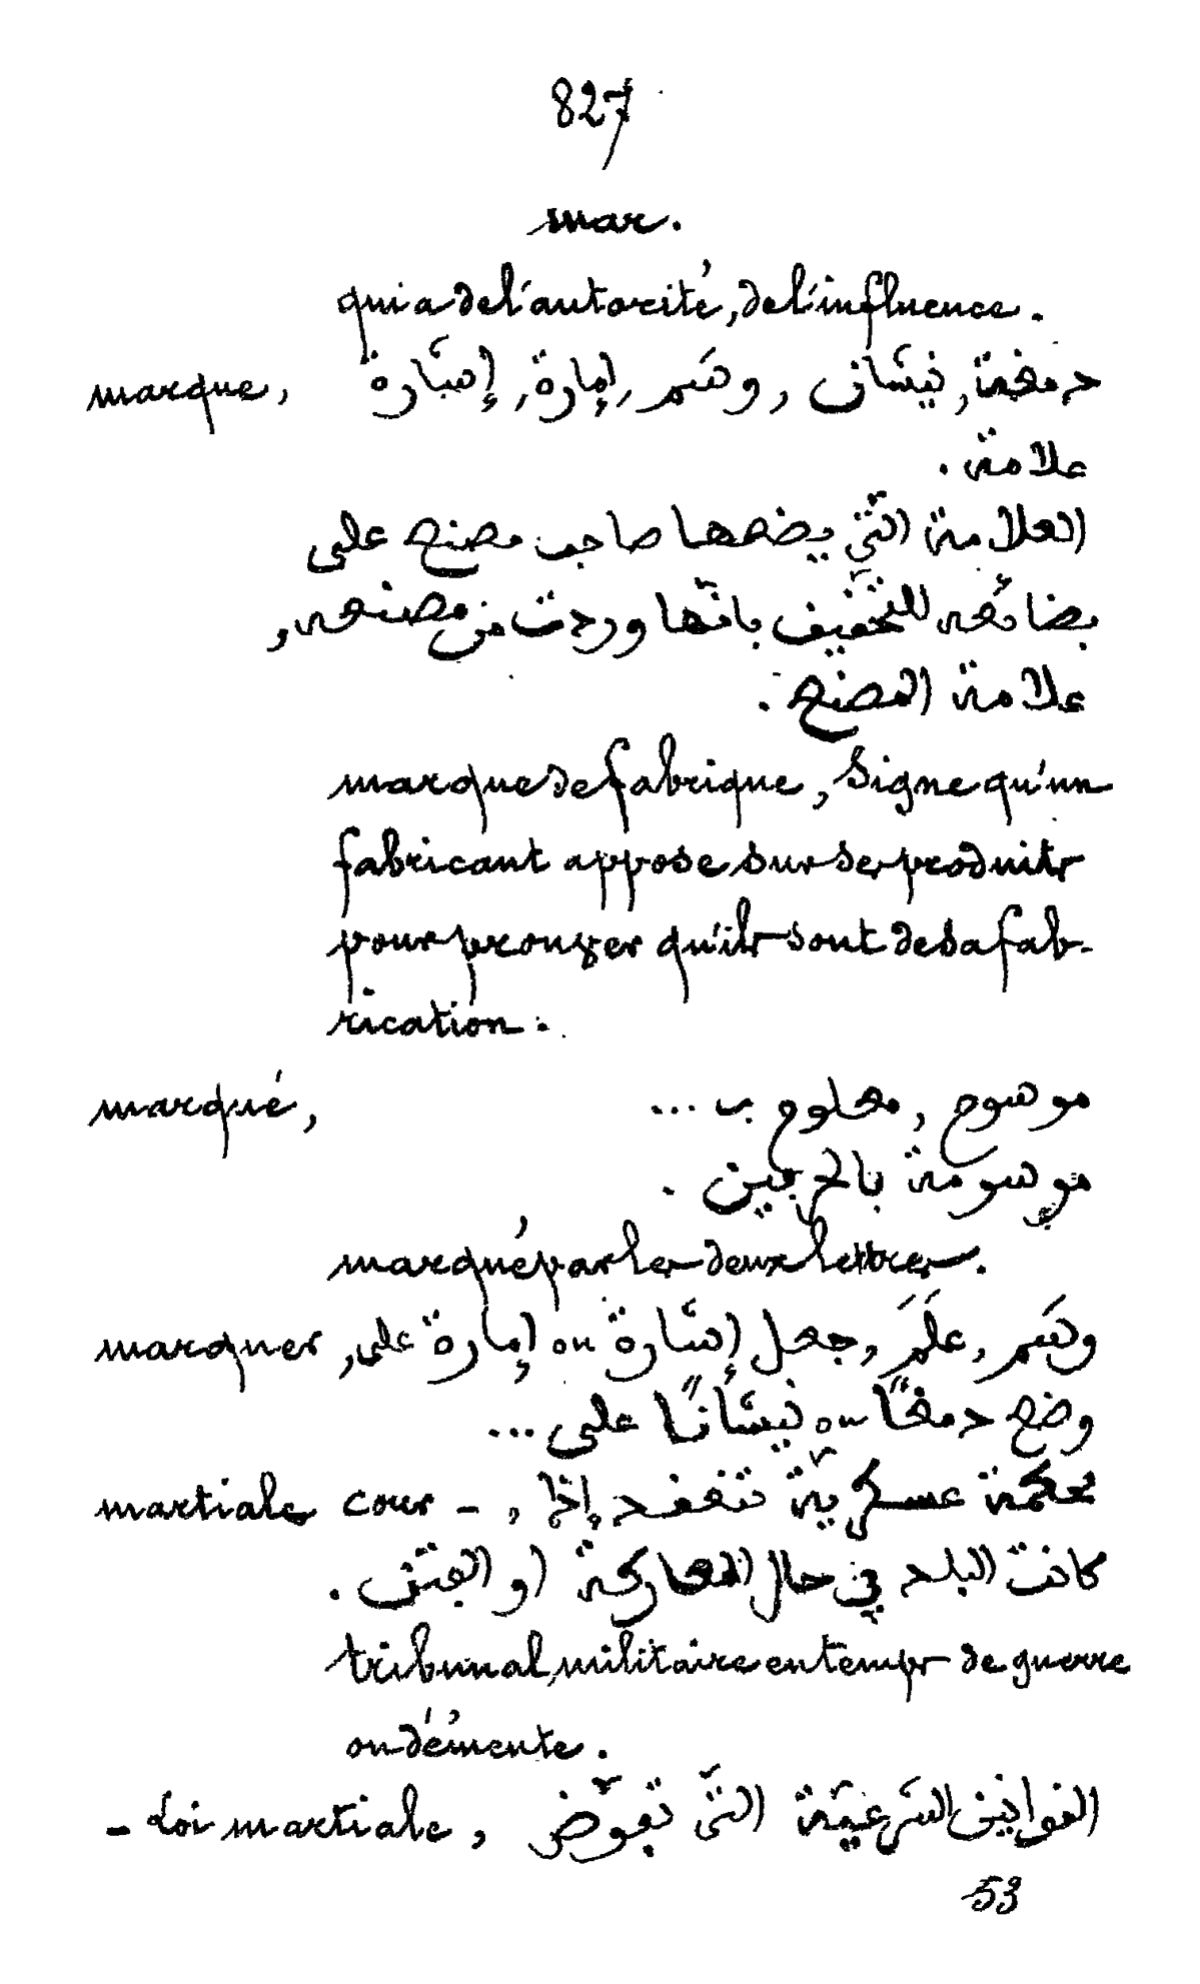 827
mar.
qui a de l'autorité, de l'influence.
marque, دمغة, نيشان, وسم, إمارة, إشارة
علامة.
العلامة التي يضعها صاحب مصنع على
بضائعه للتحفيف بانّها وردت من مصنعه,
علامة المصنع.
marque de fabrique, signe qu'un
fabricant appose sur ses produits
pour prouver qu'ils sont de sa fab-
rication.
marqué, موسوم, معلوم ب ...
موسومة بالحرفين.
marqué par les deux lettres.
marquer, وسَم, علَمَ, جعل إشارة ou إمارة على,
وضع دمغًا ou نيشانًا على ...
martiale cour -, محكمة عسكريّة تنعقد إذا
كانت البلد في حال المعاركة او الفتن.
tribunal militaire en temps de guerre
ou d'émeute.
- Loi martiale, القوانين الشرعيّة التّي تفوّض
53